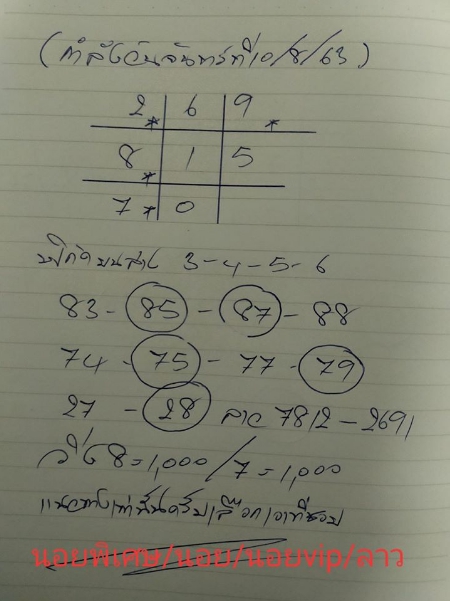 (กำลังวันจันทร์ที่10/8/63)
2* 6 9*
8* 1 5
7* 0
3-4-5-6
83-85-87-88
74-75-77-79
27-28 ลาว 7812-2691
วิ่ง8=1,000/7=1,000
แนวทางเท่านั้นครับเลือกเอาที่ชอบ
นอยพิเศษ/นอย/นอยvip/ลาว